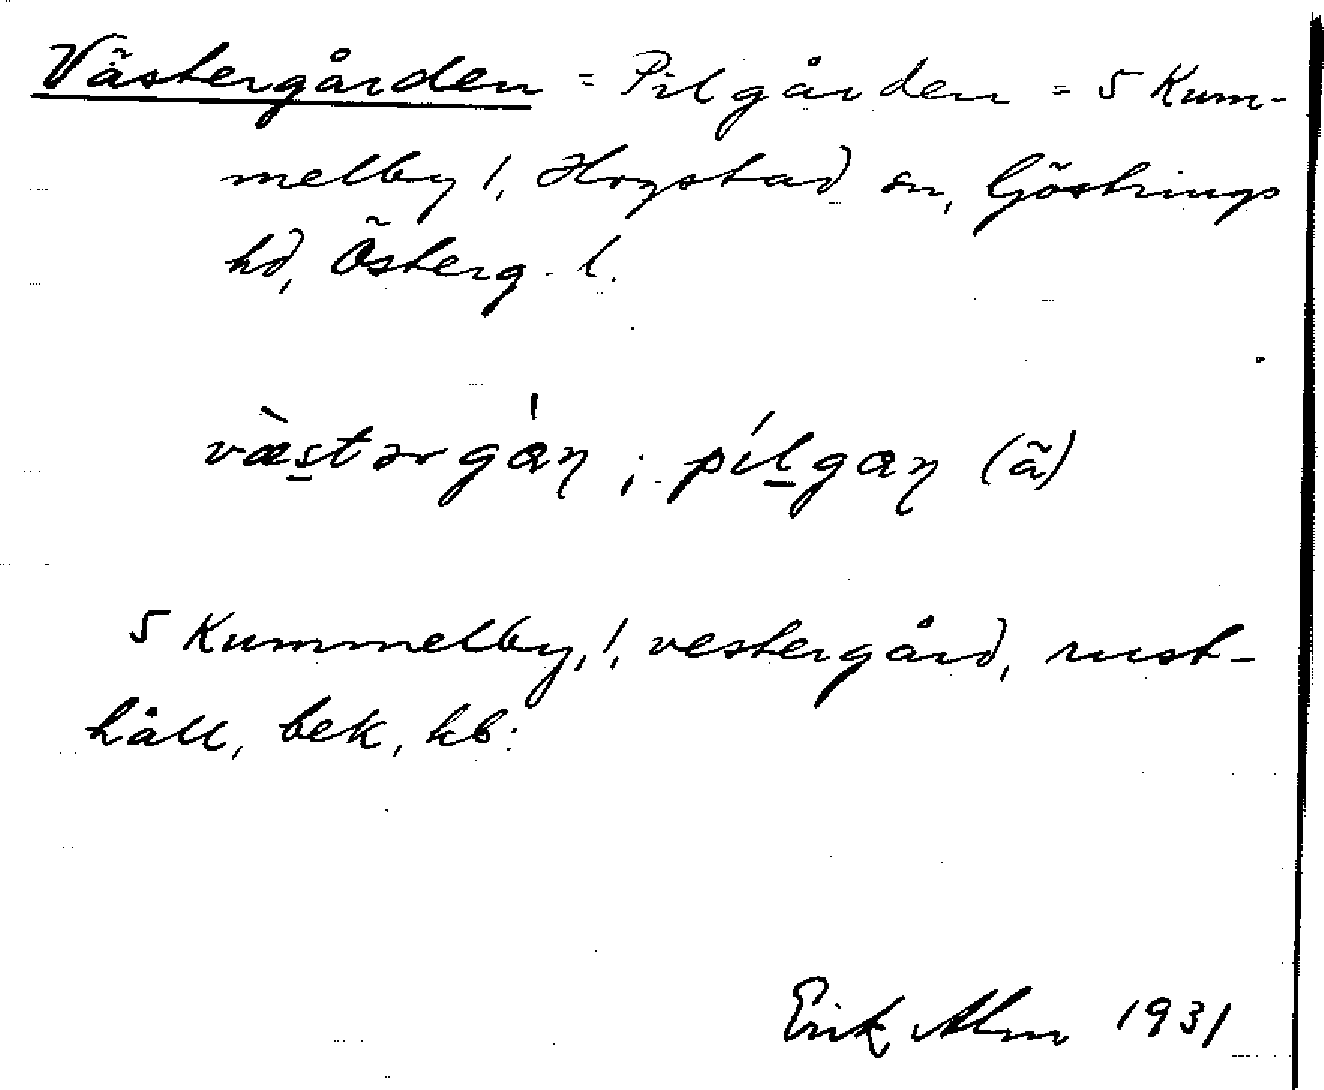 Västergården = Pilgården = 5 Kum-
melby !, Hogstad sn, Göstrings
hd, Österg. l.
væ̀stərgáɳ ; pílgaɳ (ä)
5 Kummelby, !, vestergård, rust-
håll, bek, hb:
Erik Alm 1931